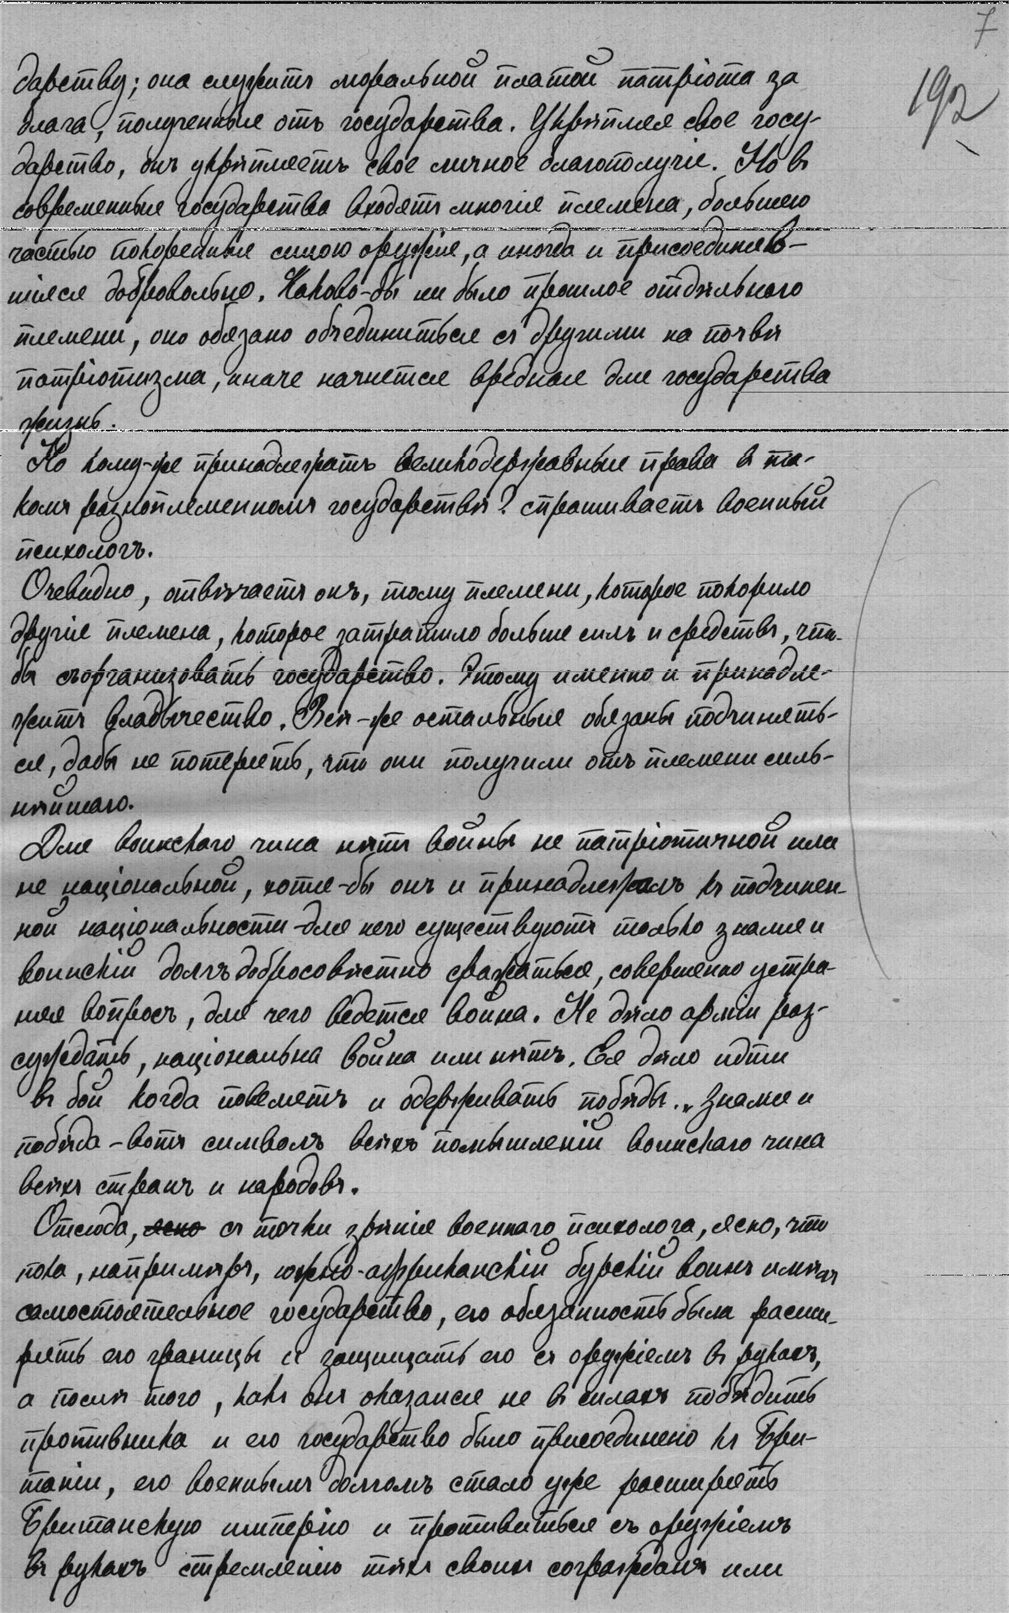 7
192
дарству; она служитъ моральной платой патріота за
блага, полученные отъ государства. Укрѣпляя свое госу-
дарство, онъ укрѣпляетъ свое личное благополучіе. Но въ
современныя государства входятъ многія племена, большею
частью покоренныя силою оружія, а иногда и присоединив-
шіяся добровольно. Каково-бы ни было прошлое отдѣльнаго
племени, оно обязано объединиться съ другими на почвѣ
патріотизма, иначе начнется вредная для государства
жизнь.
Но кому-же принадлежатъ великодержавныя права въ та-
комъ разноплеменномъ государствѣ? спрашиваетъ военный
психологъ.
Очевидно, отвѣчаетъ онъ, тому племени, которое покорило
другія племена, которое затратило больше силъ и средствъ, что-
бы съорганизовать государство. Этому именно и принадле-
житъ владычество. Всѣ-же остальныя обязаны подчинять-
ся, дабы не потерять, что они получили отъ племени силь-
нѣйшаго.
Для воинскаго чина нѣтъ войны не патріотичной или
не національной, хотя-бы онъ и принадлежалъ къ подчинен-
ной національности-для него существуютъ только знамя и
воинскій долгъ добросовѣстно сражаться, совершенно устра-
няя вопросъ, для чего ведется война. Не дѣло арміи раз-
суждать, національна война или нѣтъ. Ея дѣло идти
въ бой когда повелятъ и одерживать побѣды. „Знамя и
побѣда-вотъ символъ всѣхъ помышленій воинскаго чина
всѣхъ странъ и народовъ.
Отсюда, ясно съ точки зрѣнія военнаго психолога, ясно, что
пока, напримѣръ, южно-африканскій бурскій воинъ имѣлъ
самостоятельное государство, его обязанность была расши-
рять его границы и защищать его съ оружіемъ въ рукахъ,
а послѣ того, какъ онъ оказался не въ силахъ побѣдить
противника и его государство было присоединено къ Бри-
таніи, его военнымъ долгомъ стало уже расширять
Британскую имперію и противиться съ оружіемъ
въ рукахъ стремленію тѣхъ своихъ согражданъ или